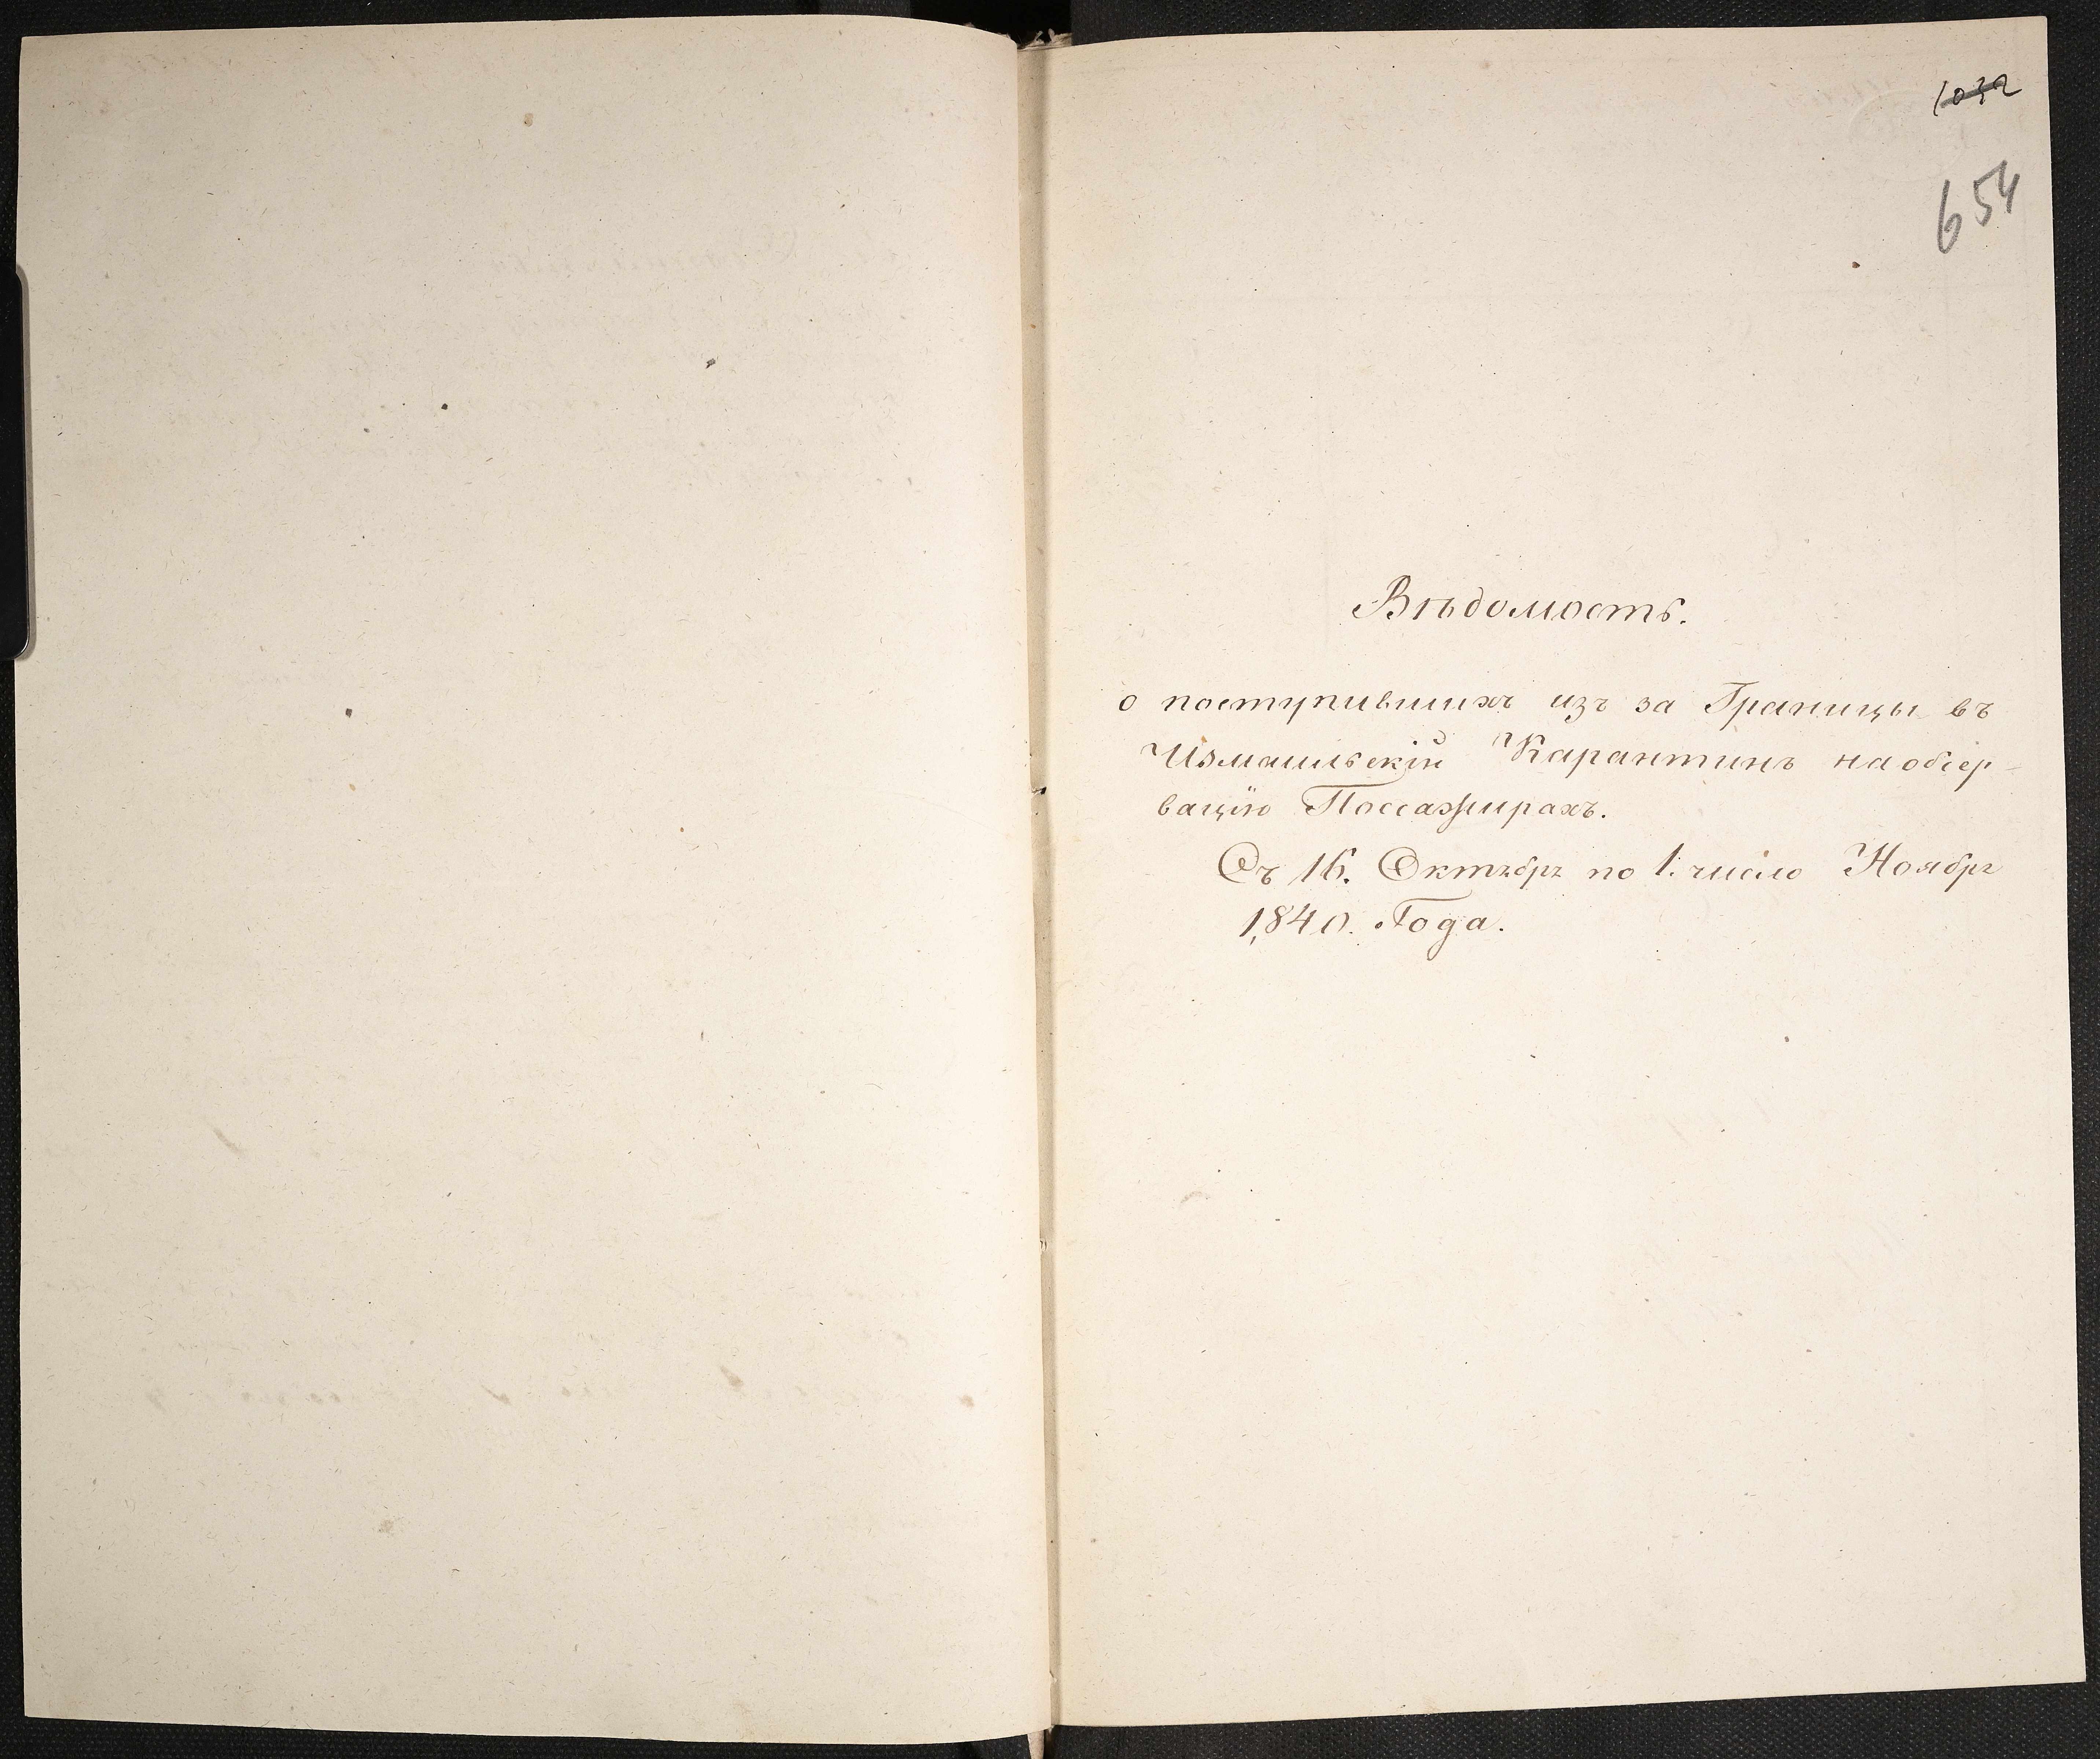 1032
654
Вѣдомость.
о поступившихъ изъ за Границы въ
Измаильскій Карантинъ наобсер-
вацію Поссажирахъ.
Съ 16. Октября по 1. число Ноября
1840. Года.